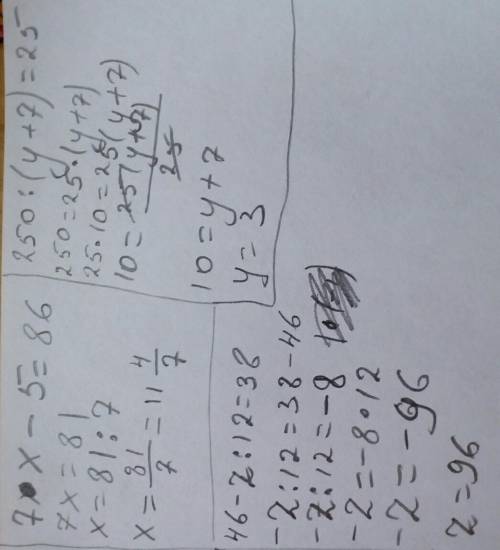 7·x − 5 = 86
7x = 81
x = 81 : 7
x = 81/7 = 11 4/7
250 : (y + 7) = 25
250 = 25·(y + 7)
25·10 = 25(y + 7)
10 = 25(y + 7)/25
10 = y + 7
y = 3
46 − z : 12 = 38
−z : 12 = 38 − 46
−z : 12 = −8
−z = −8·12
−z = −96
z = 96